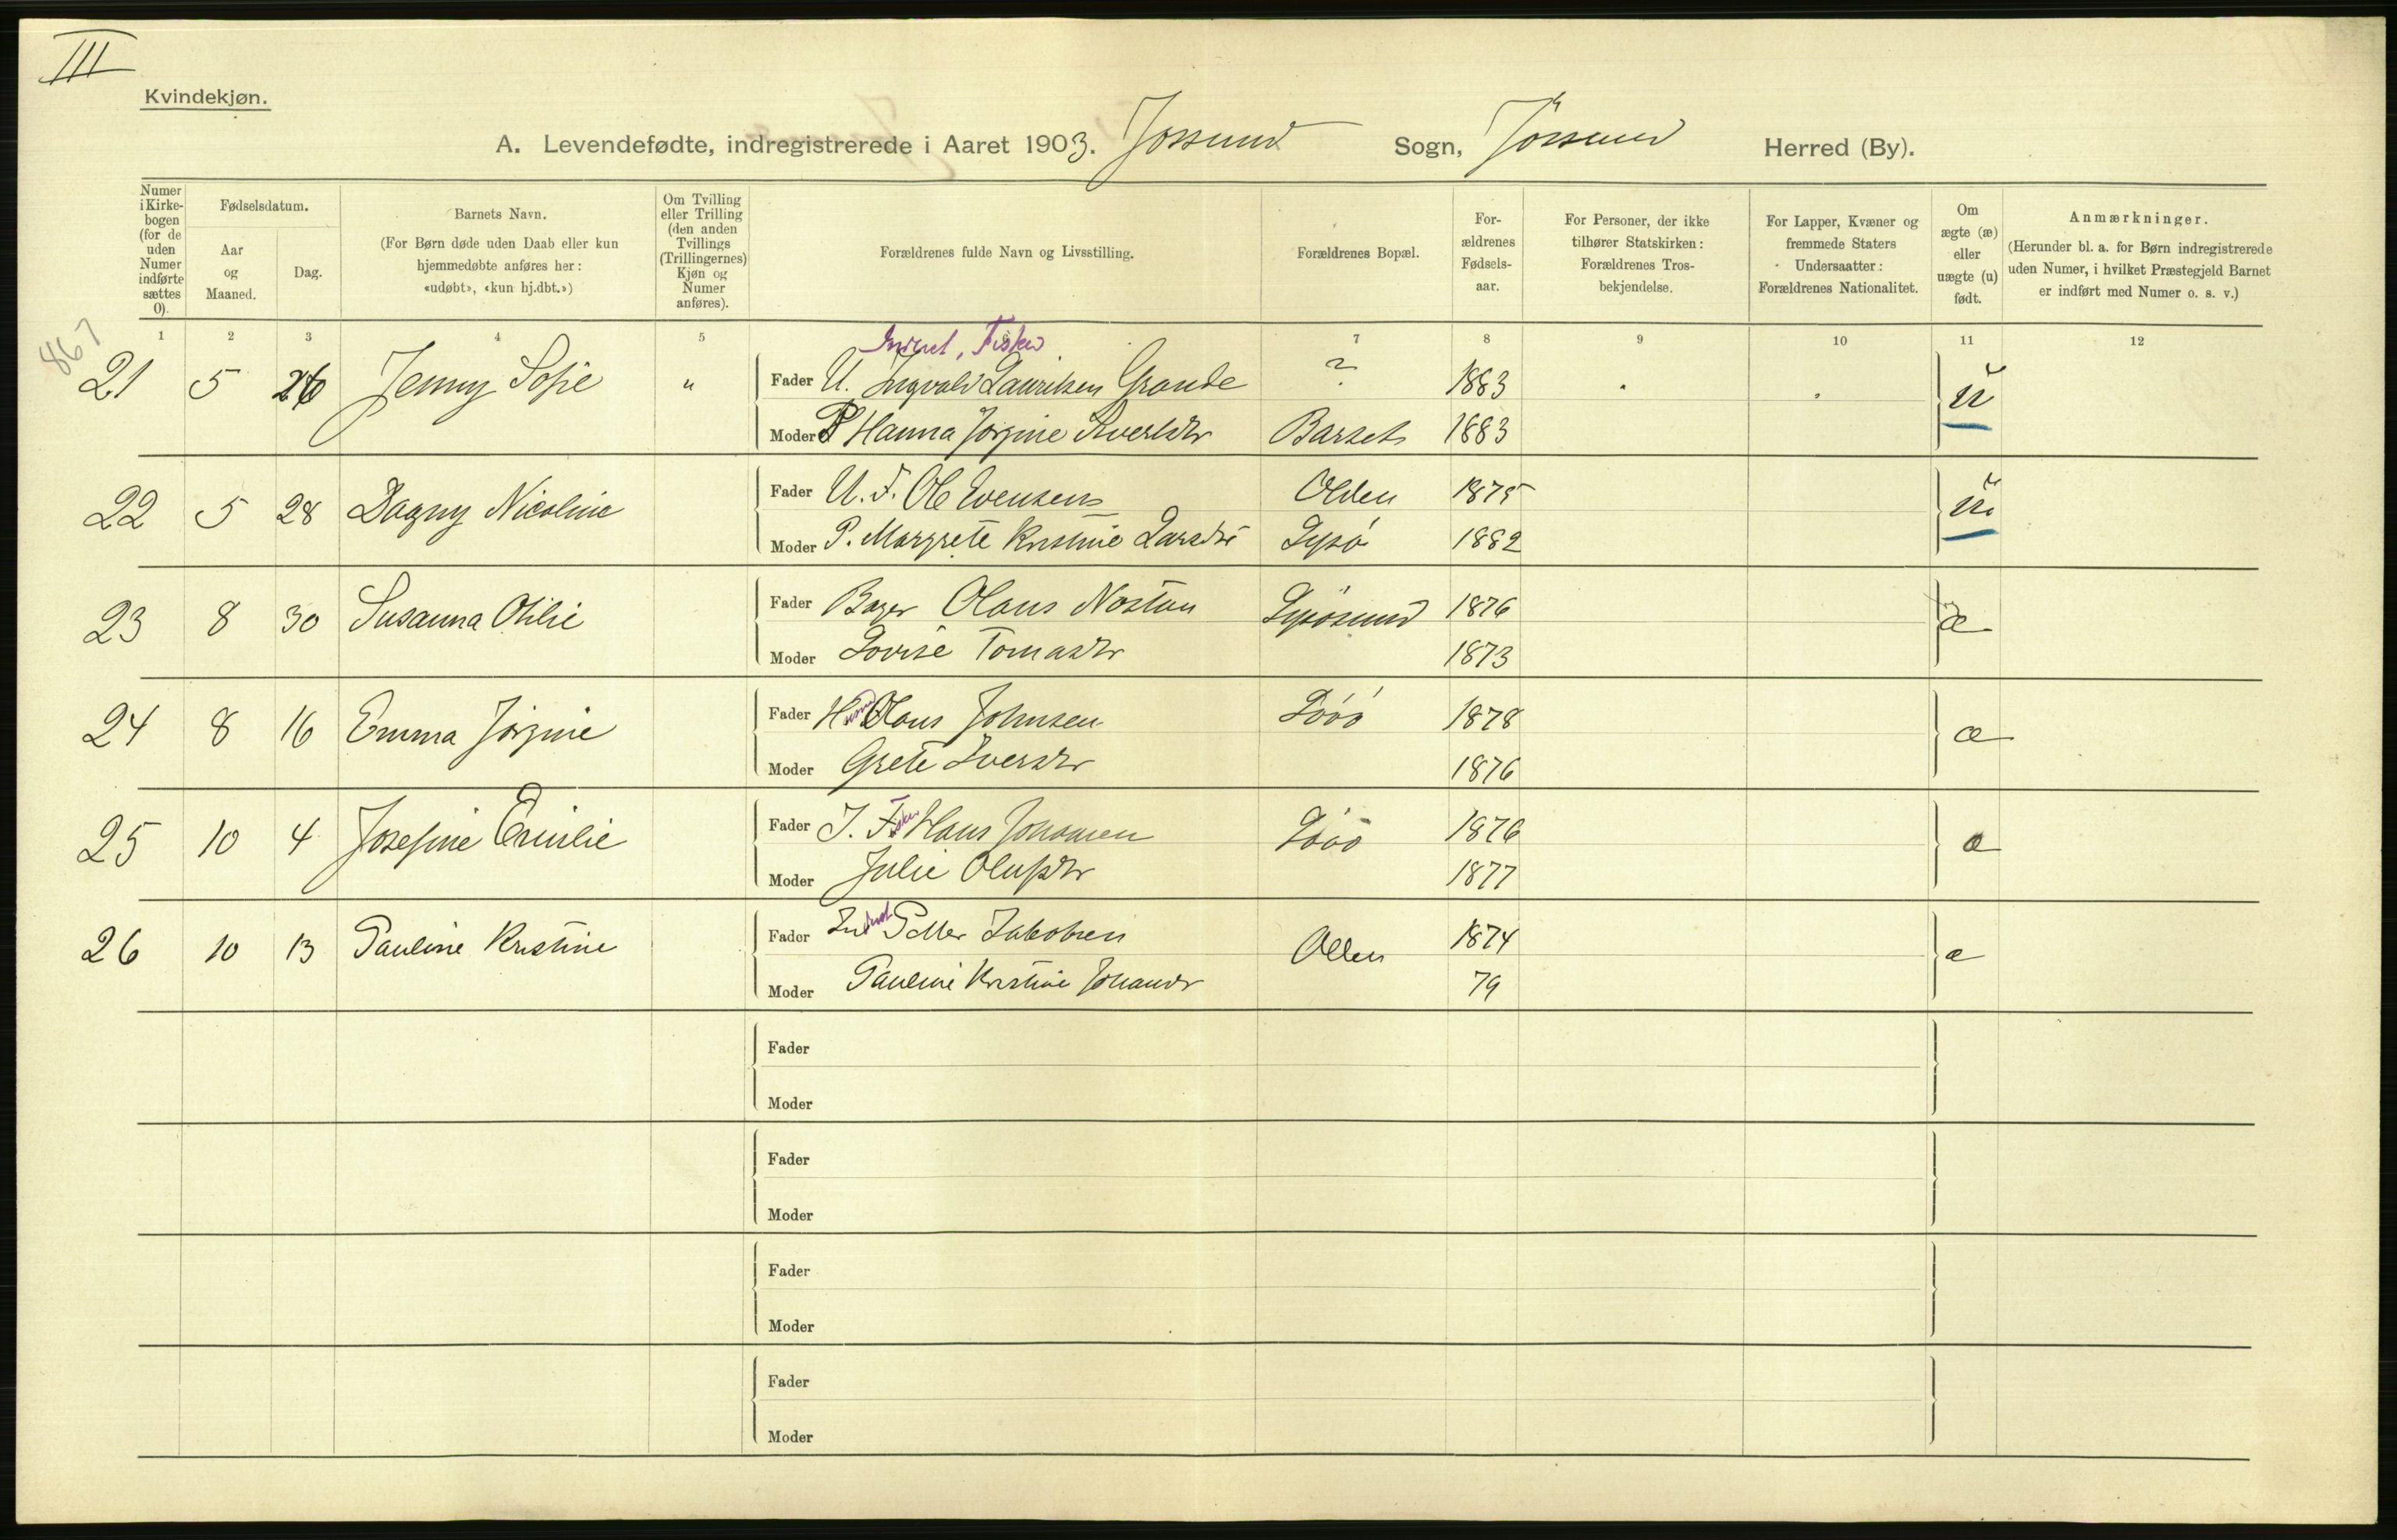 III
Kvindekjøn.
A. Levendefødte, indregistrerede i Aaret 1903. Jossund Sogn, Jössund Herred (By).
Numer i Kirkebogen (for de uden Numer indførte sættes 0).
Fødselsdatum.
Aar og Maaned.
Dag.
Barnets Navn.
(For Børn døde uden Daab eller kun hjemmedøbte anføres her: «udøbt», «kun hj.dbt.»)
Om Tvilling eller Trilling (den anden Tvillings (Trillingernes) Kjøn og Numer anføres).
Forældrenes fulde Navn og Livsstilling.
Forældrenes Bopæl.
Forældrenes Fødselsaar.
For Personer, der ikke tilhører Statskirken: Forældrenes Trosbekjendelse.
For Lapper, Kvæner og fremmede Staters Undersaatter: Forældrenes Nationalitet.
Om ægte (æ) eller uægte (u) født.
Anmærkninger.
(Herunder bl. a. for Børn indregistrerede uden Numer, i hvilket Præstegjeld Barnet er indført med Numer o. s. v.)
1 2 3 4 5 7 8 9 10 11 12
867
Fisker
21 5 26 Jenny Sofie " Fader U. Ingvald Lauritsen Grande ? 1883 ŭ
Moder P Hanna Jørgine Barset 1883
22 5 28 Dagny Nicoline Fader U. F. Ole Evensen Olden 1875 ŭ
Moder P. Margrete Kristine Larsdtr Lysø 1882
23 8 30 Susanna Otilie Fader Bager Olaus Nostan Lysøsund 1876 æ
Moder Lovise Tomasdtr 1873
24 8 16 Emma Jørgine Fader Husm Olaus Johnsen 1878 æ
Moder Grete Iversdtr 1876
25 10 4 Josefine Emilie Fader I. Fisker Hans Johansen 1876 æ
Moder Julie Olufsdtr 1877
26 10 13 Pauline Kristine Fader Inderst Petter Jakobsen Olden 1874 æ
Moder Pauline Kristine Johansdr 79
Fader
Moder
Fader
Moder
Fader
Moder
Fader
Moder